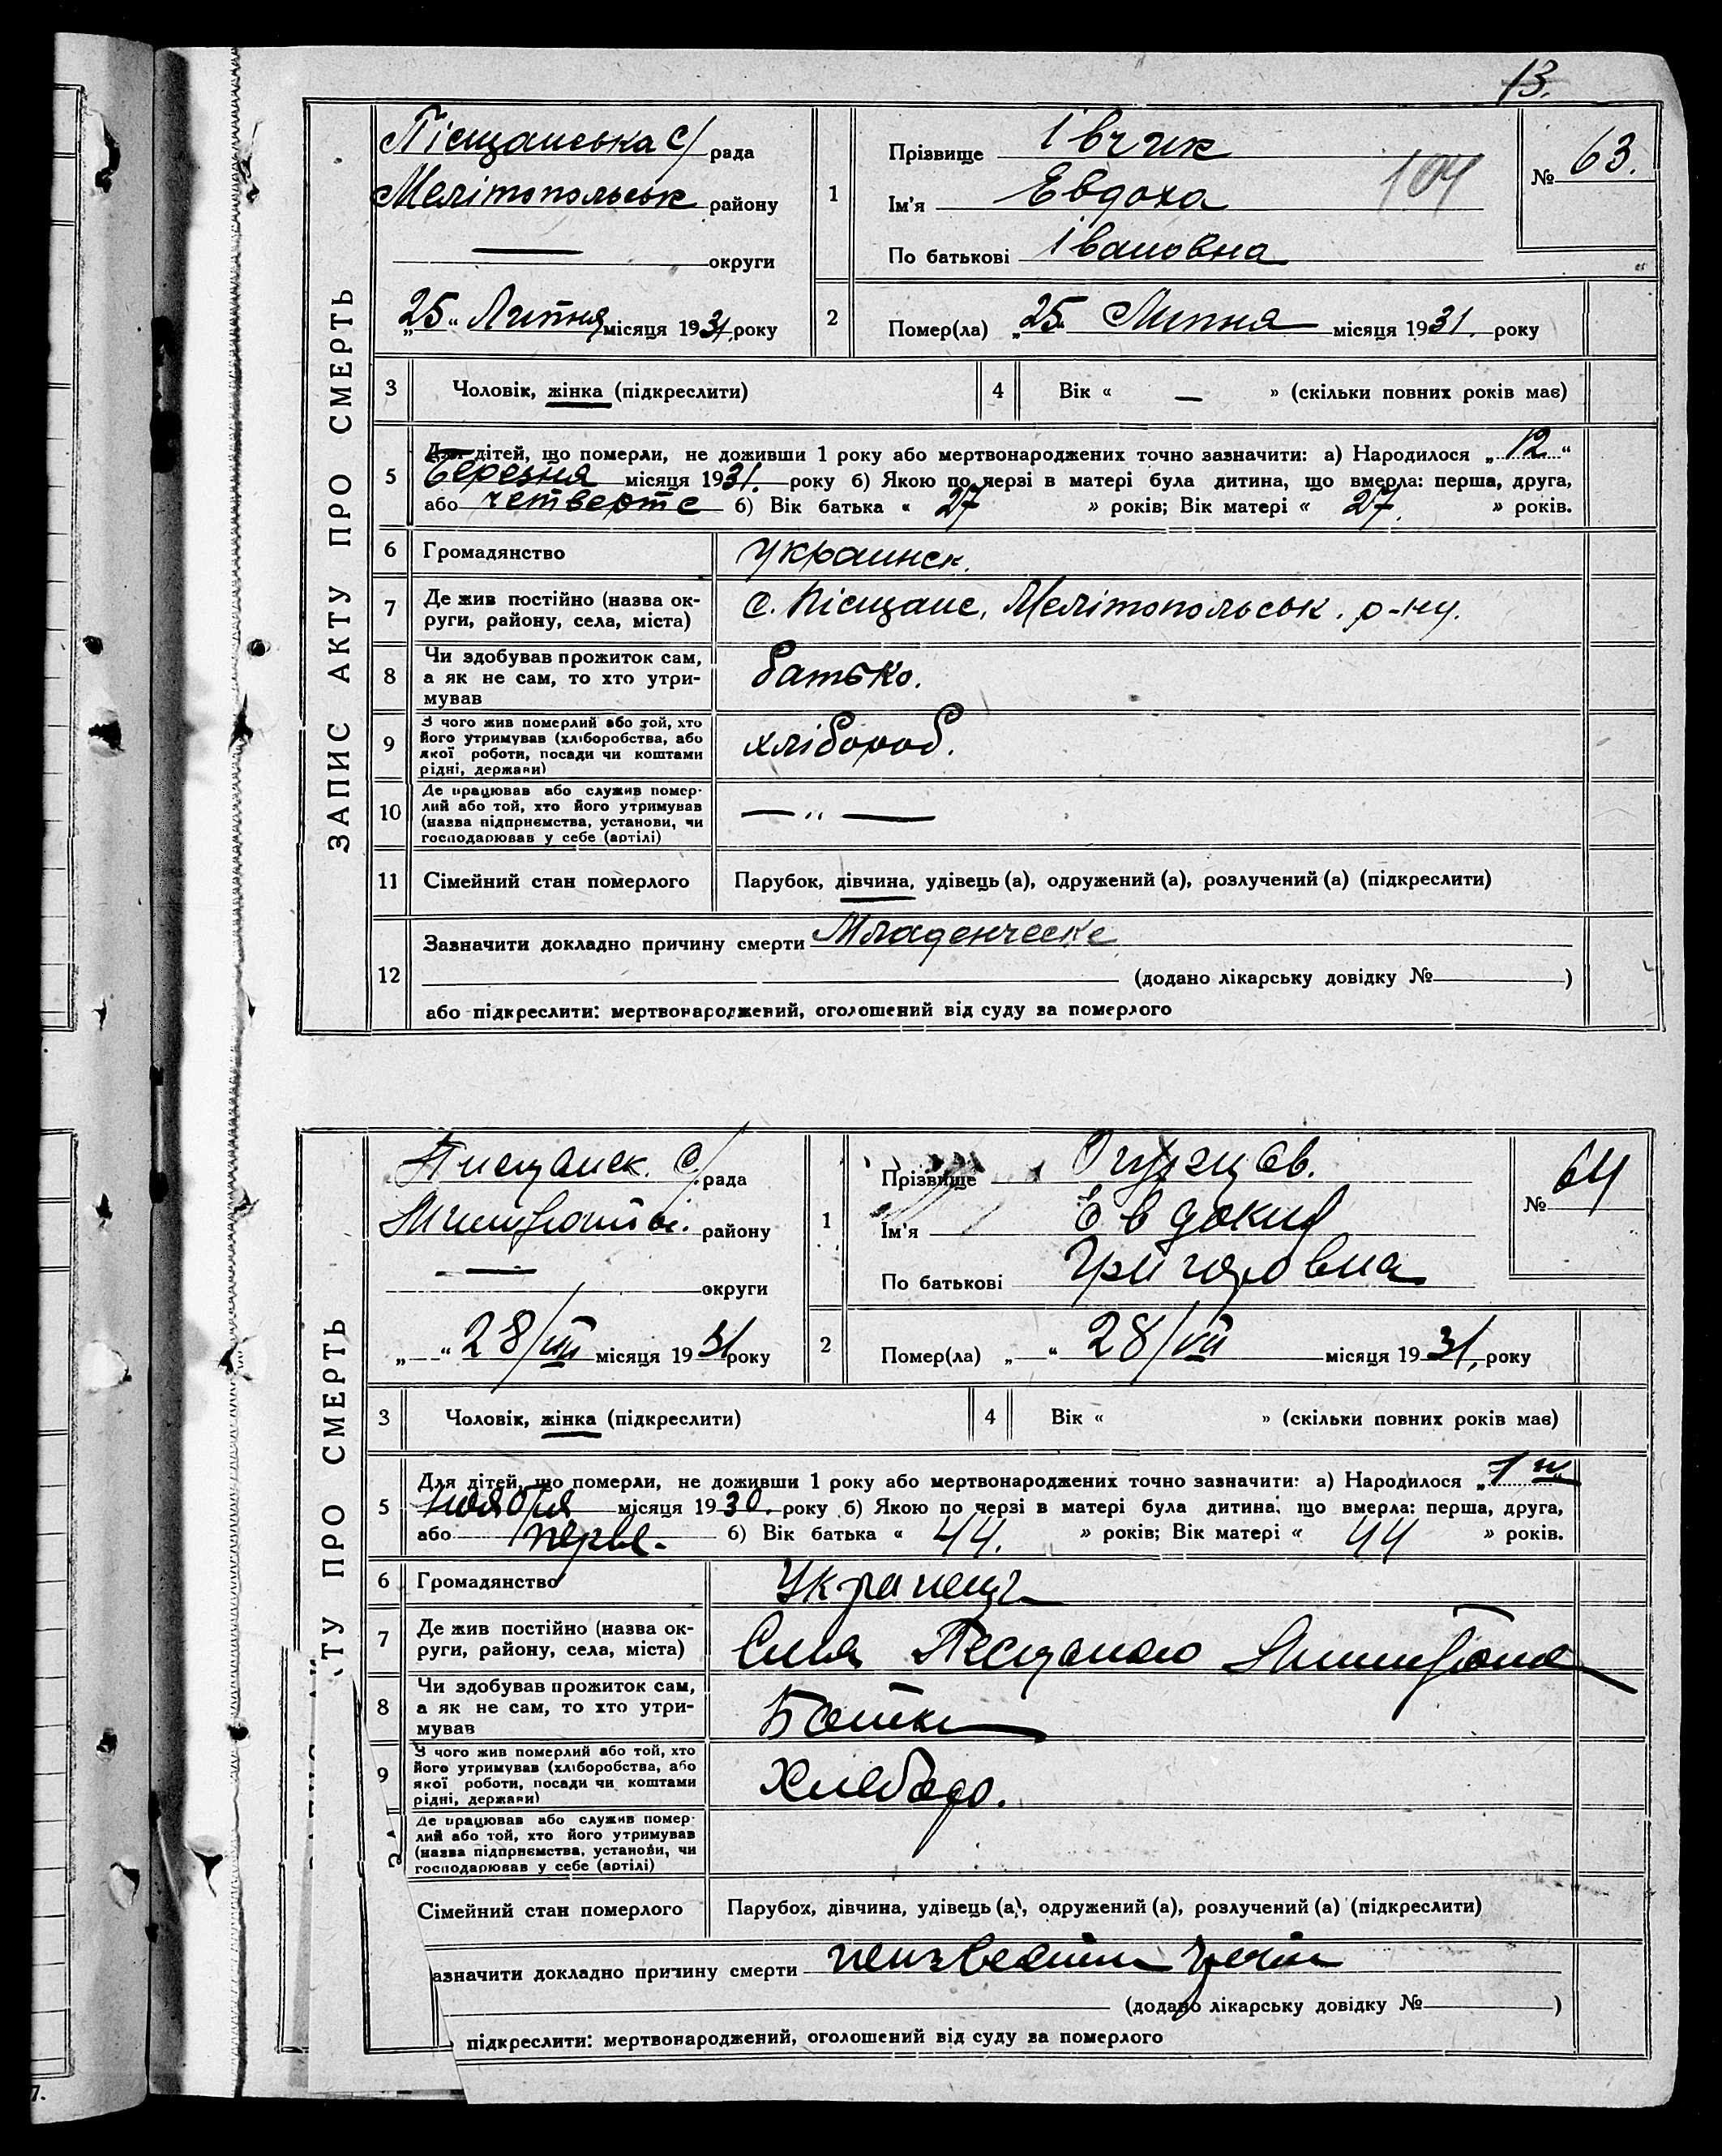 13.
ЗАПИС АКТУ ПРО СМЕРТЬ
Піщанська с/рада
Мелітопольськ району
— округи
„25“ Липня місяця 1931 року
1
Прізвище Івчик
Ім'я Евдоха
По батькові Івановна
104
№ 63.
2
Помер(ла) „25“ Липня місяця 1931. року
3 Чоловік, жінка (підкреслити)
4 Вік « — » (скільки повних років має)
5 Для дітей, що померли, не доживши 1 року або мертвонароджених точно зазначити: а) Народилося „12“
Березня місяця 1931. року б) Якою по черзі в матері була дитина, що вмерла: перша, друга,
або четверте б) Вік батька « 27 » років; Вік матері « 27. » років.
6 Громадянство Украинск.
7 Де жив постійно (назва ок-
руги, району, села, міста)
с. Піщане, Мелітопольськ. р-ну.
8 Чи здобував прожиток сам,
а як не сам, то хто утри-
мував
батько.
9 З чого жив померлий або той, хто
його утримував (хліборобства, або
якої роботи, посади чи коштами
рідні, держави)
хлібороб.
10 Де працював або служив помер-
лий або той, хто його утримував
(назва підприємства, установи, чи
господарював у себе (артілі)
— „ —
11 Сімейний стан померлого Парубок, дівчина, удівець (а), одружений (а), розлучений (а) (підкреслити)
12 Зазначити докладно причину смерти Младенческе
(додано лікарську довідку № )
або підкреслити: мертвонароджений, оголошений від суду за померлого
ТУ ПРО СМЕРТЬ
Пищанск. с/рада
району
— округи
„ “ 28/VII місяця 1931 року
1
Прізвище
Ім'я Евдокия
По батькові Григоровна
№ 64
2
Помер(ла) „ “ 28/VII місяця 1931. року
3 Чоловік, жінка (підкреслити)
4 Вік « » (скільки повних років має)
5 Для дітей, що померли, не доживши 1 року або мертвонароджених точно зазначити: а) Народилося „1
ноября місяця 1930. року б) Якою по черзі в матері була дитина, що вмерла: перша, друга,
або перве. б) Вік батька « 44. » років; Вік матері « 44 » років.
6 Громадянство
7 Де жив постійно (назва ок-
руги, району, села, міста)
Села Песчаного
8 Чи здобував прожиток сам,
а як не сам, то хто утри-
мував
9 З чого жив померлий або той, хто
його утримував (хліборобства, або
якої роботи, посади чи коштами
рідні, держави)
Де працював або служив помер-
лий або той, хто його утримував
(назва підприємства, установи, чи
господарював у себе (артілі)
Сімейний стан померлого Парубок, дівчина, удівець (а), одружений (а), розлучений (а) (підкреслити)
азначити докладно причину смерти
(додано лікарську довідку № )
підкреслити: мертвонароджений, оголошений від суду за померлого
7.